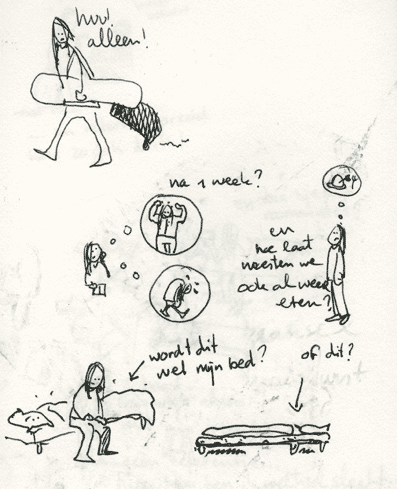 huu!
alleen!
na 1 week?
en
hoe laat
moesten we
ook al weer
eten?
wordt dit
wel mijn bed?
of dit?